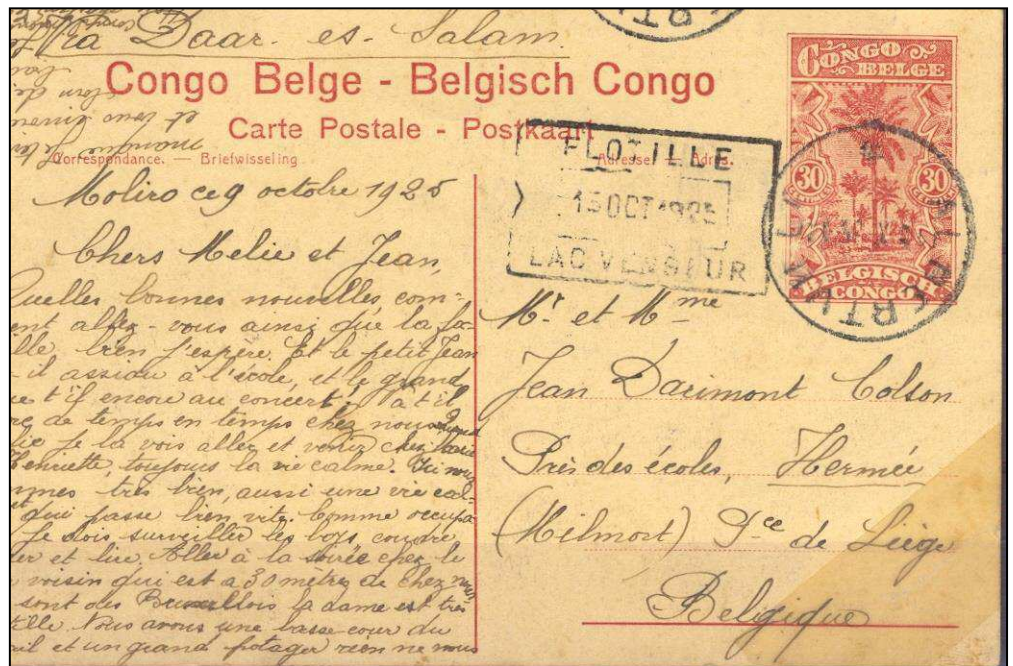 Via Daar-es-Salam
Congo Belge - Belgisch Congo
Carte Postale - Postkaart
Correspondance. — Briefwisseling
Adresse — Adres.
CONGO
BELGE
30
30
BELGISCH
CONGO
FLOTILLE
13 OCT 1925
LAC VENSEUR
ALBERTV
Moliro ce 9 octobre 1925
Chers Melie et Jean,
Quelles bonnes nouvelles, com-
ent allez-vous ainsi que la fa-
lle bien j'espère. Et le petit Jean
il assidu à l'école, et le grand
t'il encore au concert. a t'il
de temps en temps chez nous
je la vois aller et venir chez
Henriette, toujours la vie calme. Ici nous
mmes très bien, aussi une vie cal-
qui passe bien vite. Comme occupa
je dois surveiller les boys, coudre
er et lire. Aller à la soirée chez le
voisin qui est a 30 mètres de chez nous
sont des Bruxellois la dame est très
ille. Nous avons une basse-cour du
ail et un grand potager rien ne nous
manque
et vous
Mr. et Mme
Jean Darimont Colson
Près des écoles, Hermée
(Milmort) Pce de Liège
Belgique